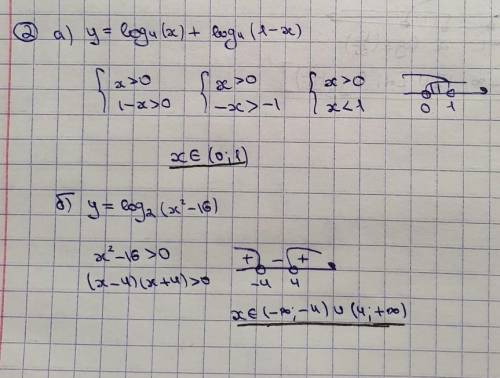 ② а) y = log₄(x) + log₄(1-x)
{ x>0 { x>0 { x>0
{ 1-x>0 { -x>-1 { x<1
0 1
x∈(0;1)
б) y = log₂(x²-16)
x²-16>0
(x-4)(x+4)>0
+ - +
-4 4
x∈(-∞;-4)∪(4;+∞)